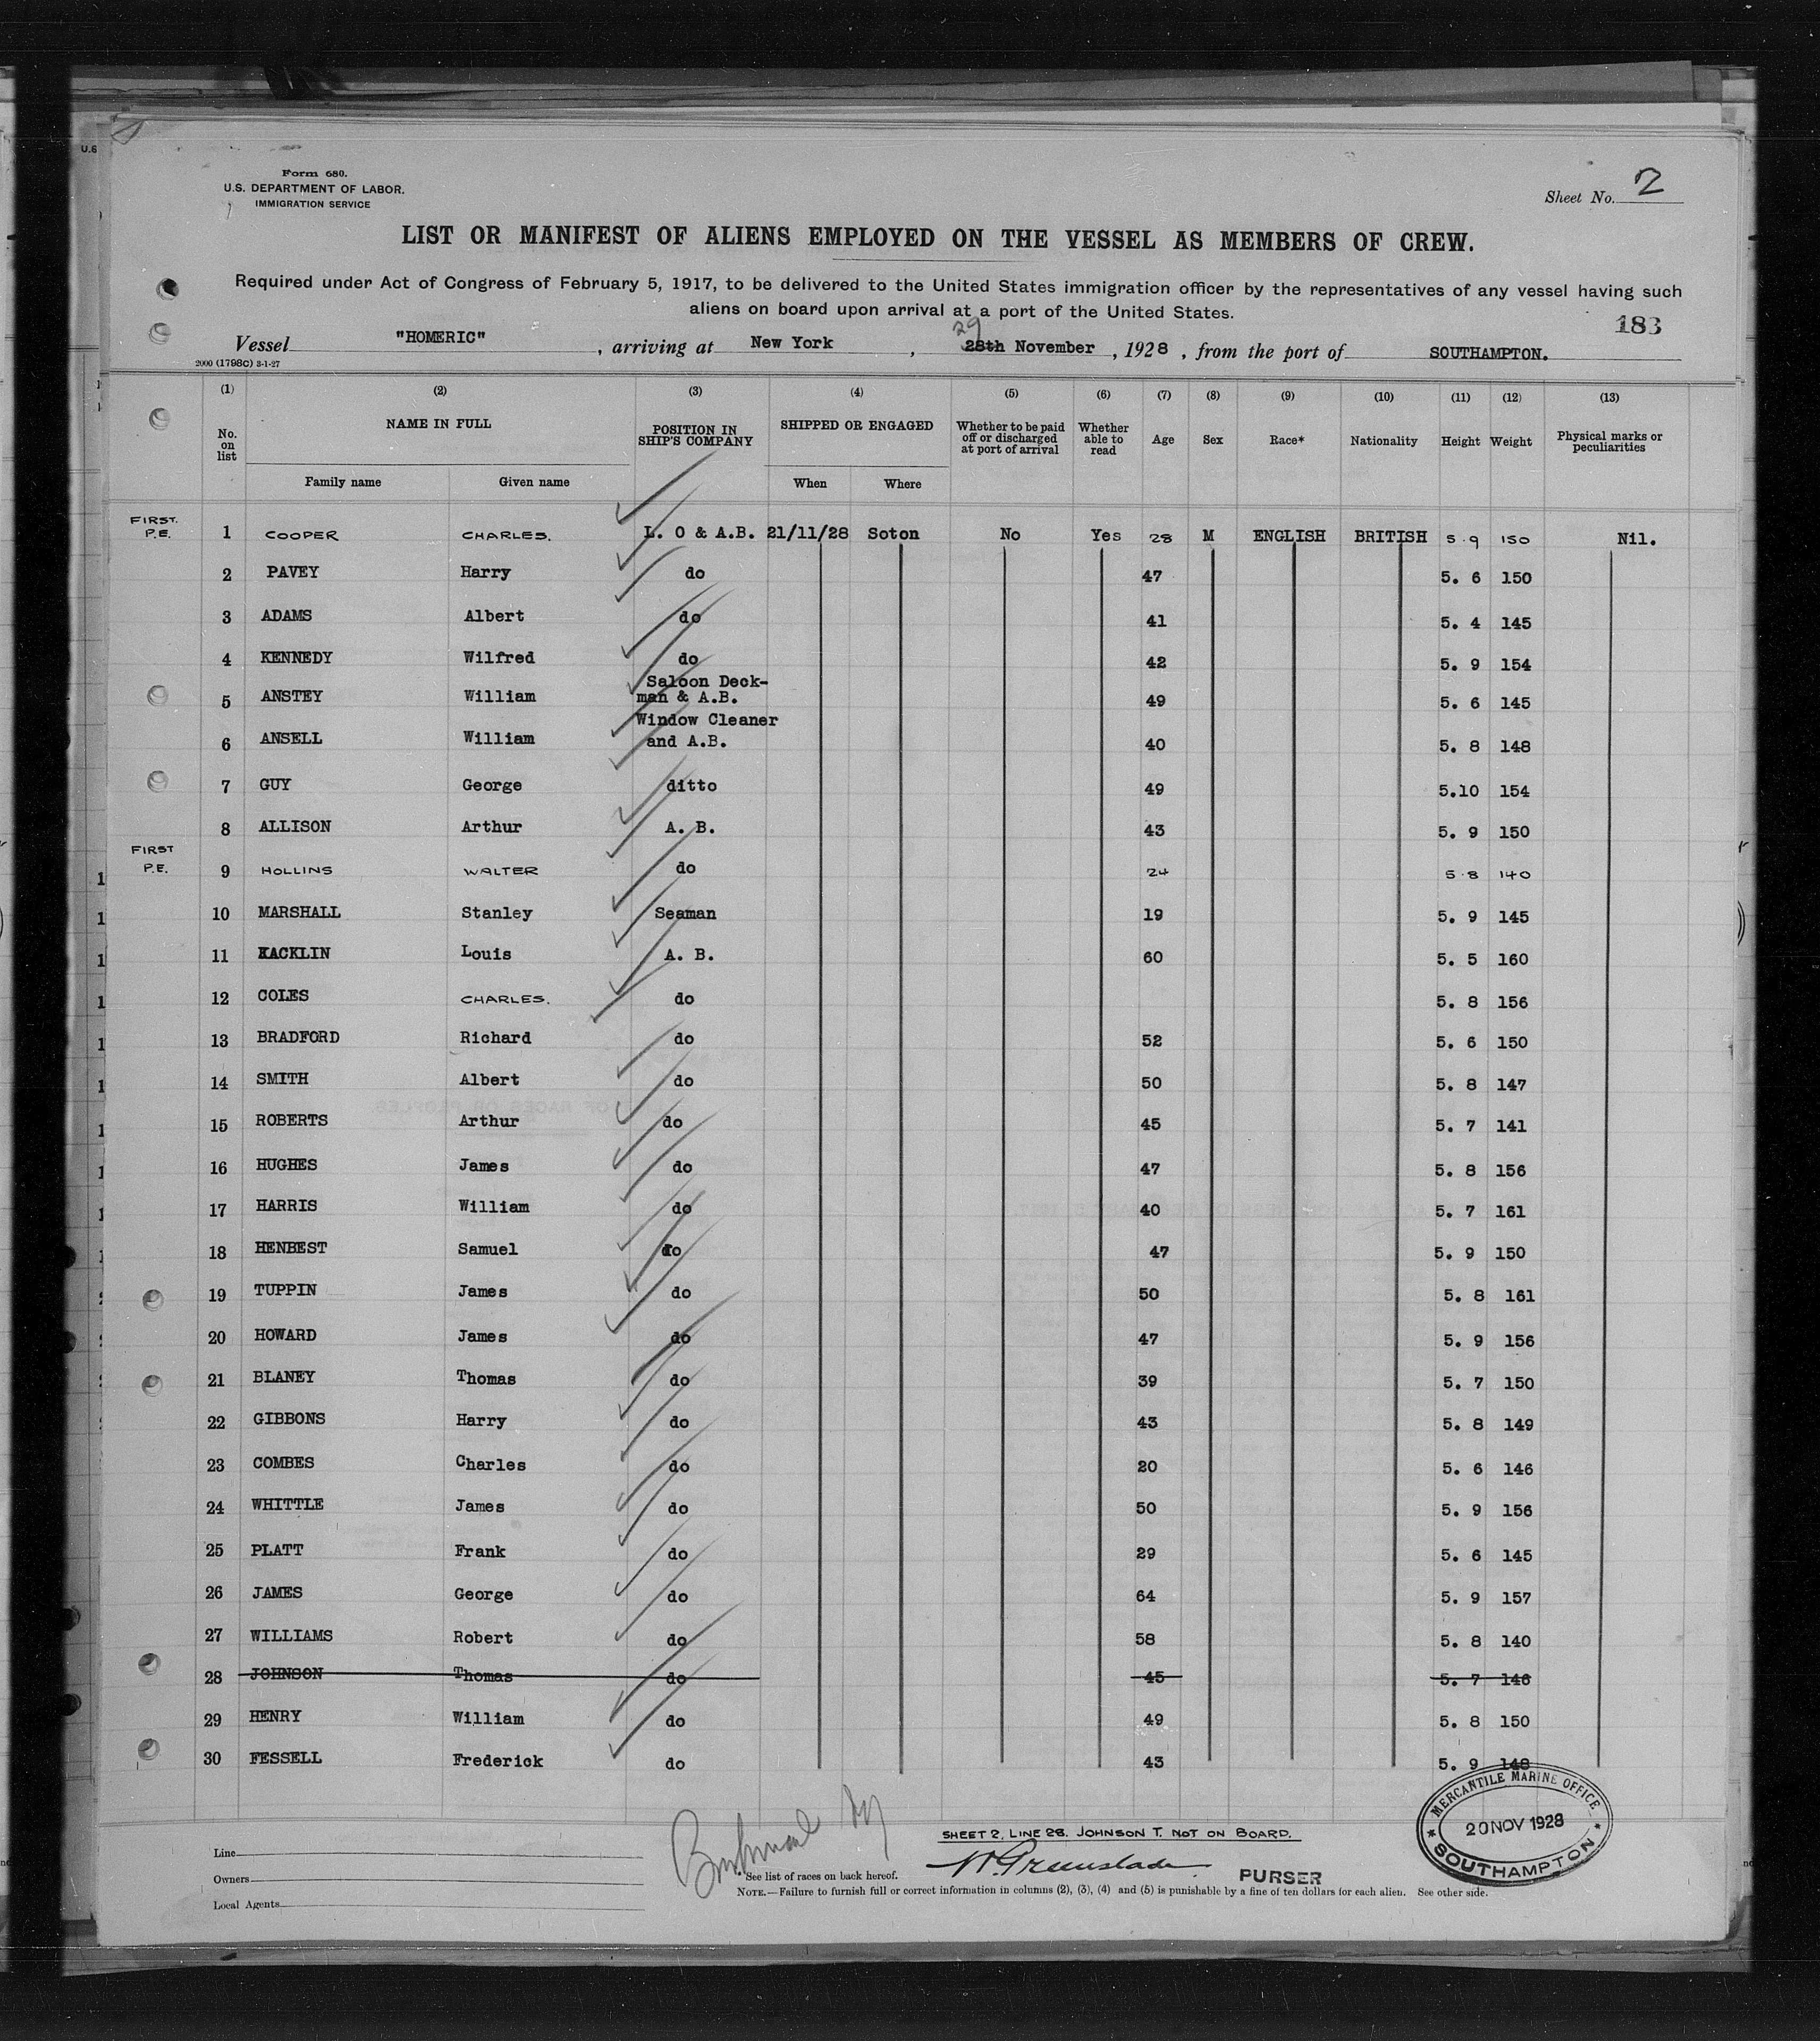 Form 680.
U.S. DEPARTMENT OF LABOR.
IMMIGRATION SERVICE
Sheet No. 2
LIST OR MANIFEST OF ALIENS EMPLOYED ON THE VESSEL AS MEMBERS OF CREW.
Required under Act of Congress of February 5, 1917, to be delivered to the United States immigration officer by the representatives of any vessel having such
aliens on board upon arrival at a port of the United States.
183
29
Vessel "HOMERIC", arriving at New York, 28th November, 1928, from the port of SOUTHAMPTON.
2000 (1798c) 3-1-27
(1) (2) (3) (4) (5) (6) (7) (8) (9) (10) (11) (12) (13)
No. on list NAME IN FULL POSITION IN SHIP'S COMPANY SHIPPED OR ENGAGED Whether to be paid off or discharged at port of arrival Whether able to read Age Sex Race* Nationality Height Weight Physical marks or peculiarities
Family name Given name When Where
FIRST. P.E. 1 COOPER CHARLES. L. O & A.B. 21/11/28 Soton No Yes 28 M ENGLISH BRITISH 5.9 150 Nil.
2 PAVEY Harry do 47 5. 6 150
3 ADAMS Albert do 41 5. 4 145
4 KENNEDY Wilfred do 42 5. 9 154
5 ANSTEY William Saloon Deck-man & A.B. 49 5. 6 145
6 ANSELL William Window Cleaner and A.B. 40 5. 8 148
7 GUY George ditto 49 5.10 154
8 ALLISON Arthur A. B. 43 5. 9 150
FIRST P.E. 9 HOLLINS WALTER do 24 5.8 140
10 MARSHALL Stanley Seaman 19 5. 9 145
11 KACKLIN Louis A. B. 60 5. 5 160
12 COLES CHARLES. do 5. 8 156
13 BRADFORD Richard do 52 5. 6 150
14 SMITH Albert do 50 5. 8 147
15 ROBERTS Arthur do 45 5. 7 141
16 HUGHES James do 47 5. 8 156
17 HARRIS William do 40 5. 7 161
18 HENBEST Samuel do 47 5. 9 150
19 TUPPIN James do 50 5. 8 161
20 HOWARD James do 47 5. 9 156
21 BLANEY Thomas do 39 5. 7 150
22 GIBBONS Harry do 43 5. 8 149
23 COMBES Charles do 20 5. 6 146
24 WHITTLE James do 50 5. 9 156
25 PLATT Frank do 29 5. 6 145
26 JAMES George do 64 5. 9 157
27 WILLIAMS Robert do 58 5. 8 140
28 JOHNSON Thomas do 45 5. 7 146
29 HENRY William do 49 5. 8 150
30 FESSELL Frederick do 43 5. 9 148
MERCANTILE MARINE OFFICE
20 NOV 1928
SOUTHAMPTON
SHEET 2, LINE 28. JOHNSON T. NOT ON BOARD.
Greenslade PURSER
Line
Owners
Local Agents
*See list of races on back hereof.
NOTE.—Failure to furnish full or correct information in columns (2), (3), (4) and (5) is punishable by a fine of ten dollars for each alien. See other side.